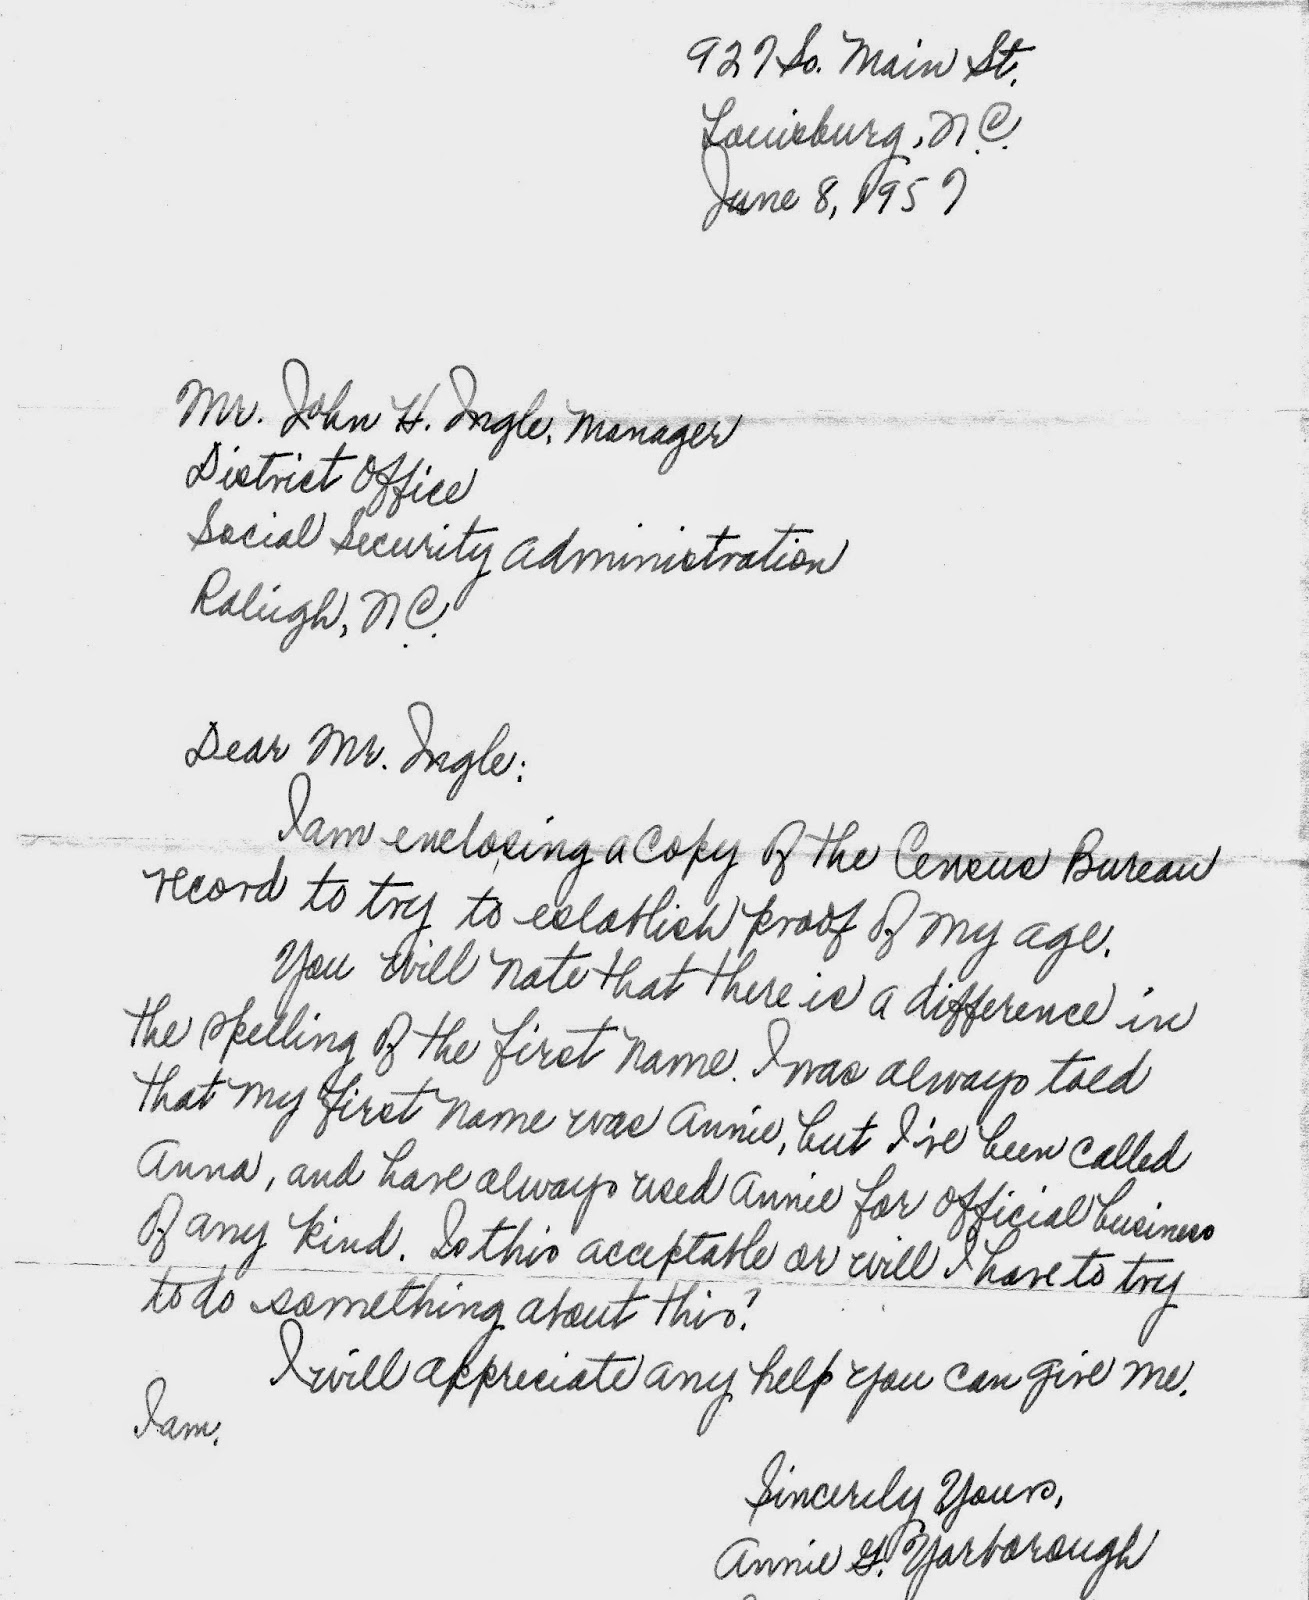 927 So. Main St.
Louisburg, N.C.
June 8, 1957
Mr. John H. Ingle, Manager
District Office
Social Security Administration
Raleigh, N.C.
Dear Mr. Ingle:
I am enclosing a copy of the Census Bureau
record to try to establish proof of my age.
You will note that there is a difference in
the spelling of the first name. I was always told
that my first name was Annie, but I've been called
Anna, and have always used Annie for official business
of any kind. Is this acceptable or will I have to try
to do something about this?
I will appreciate any help you can give me.
I am.
Sincerely Yours,
Annie G. Yarborough